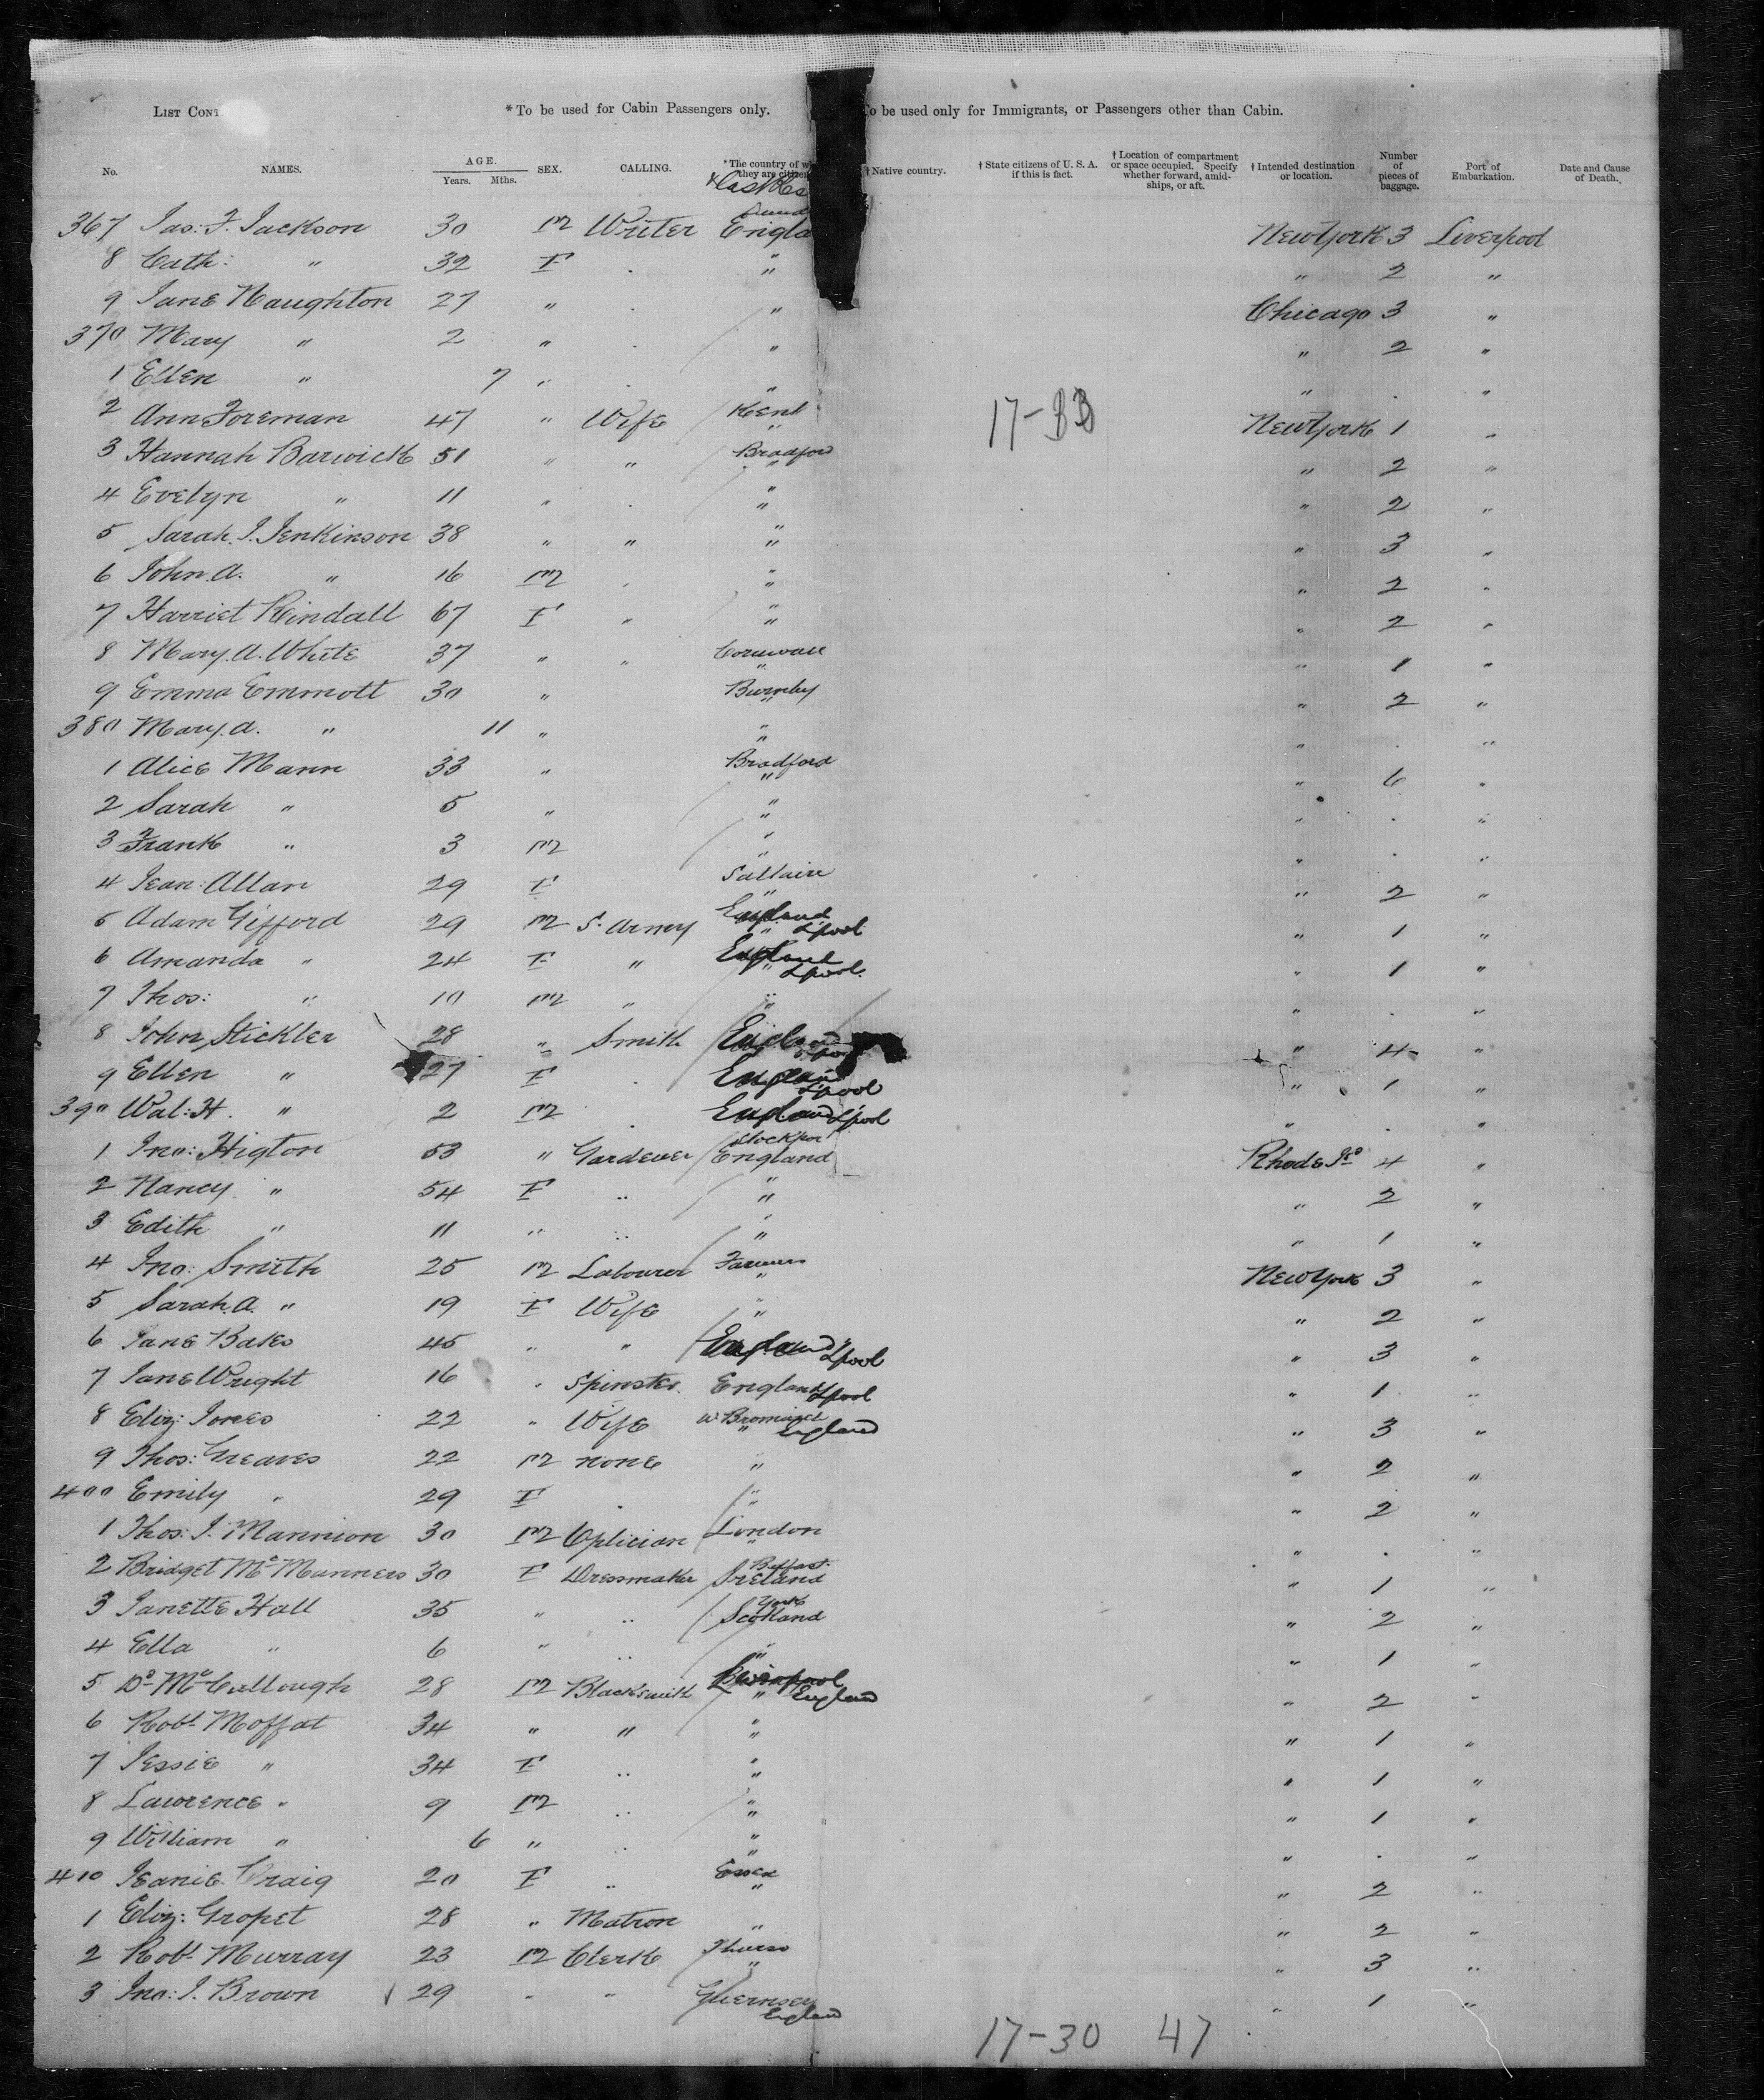 LIST CONT
*To be used for Cabin Passengers only.
o be used only for Immigrants, or Passengers other than Cabin.
No. NAMES. AGE. Years. Mths. SEX. CALLING. *The country of wh they are citizen †Native country. †State citizens of U. S. A. if this is fact. †Location of compartment or space occupied. Specify whether forward, amidships, or aft. †Intended destination or location. Number of pieces of baggage. Port of Embarkation. Date and Cause of Death.
367 Jas: F. Jackson 30 M Writer Engla New York 3 Liverpool
8 Cath: " 32 F " " 2 "
9 Jane Naughton 27 " " Chicago 3 "
370 Mary " 2 " " " 2 "
1 Ellen " 7 " " " "
2 Ann Foreman 47 " Wife Kent " 17-33 New York 1 "
3 Hannah Barwick 51 " " Bradford " " 2 "
4 Evelyn " 11 " " " 2 "
5 Sarah J. Jenkinson 38 " " " " 3 "
6 John A. " 16 M " " 2 "
7 Harriet Kindall 67 F " " " 2 "
8 Mary. A. White 37 " " Cornwall " " 1 "
9 Emma Emmott 30 " Burnley " " 2 "
380 Mary. A. " 11 " " " "
1 Alice Mann 33 " Bradford " " 6 "
2 Sarah " 5 " " " "
3 Frank " 3 M " " "
4 Jean: Allan 29 F Saltaire " " 2 "
5 Adam Gifford 29 M S. Army England L'pool " 1 "
6 Amanda " 24 F " England L'pool " 1 "
7 Thos: " 10 M " " " "
8 John Stickler 28 " Smith England " 4 "
9 Ellen " 27 F England L'pool " 1 "
390 Wal: H. " 2 M England L'pool " "
1 Jno: Higton 53 " Gardener Stockpor England Rhode Is 4 "
2 Nancy " 54 F " " " 2 "
3 Edith " 11 " " " " 1 "
4 Jno: Smith 25 M Labourer " New York 3 "
5 Sarah. A. " 19 F Wife " " 2 "
6 Jane Bakes 45 " " England L'pool " 3 "
7 Jane Wright 16 " Spinster England L'pool " 1 "
8 Eliz: Jones 22 " Wife W. Bromwich England " 3 "
9 Thos: Greaves 22 M none " " 2 "
400 Emily " 29 F " " 2 "
1 Thos: J. Mannion 30 M Optician London " " "
2 Bridget McManners 30 F Dressmaker Belfast Ireland " 1 "
3 Janette Hall 35 " " York Scotland " 2 "
4 Ella " 6 " " " " 1 "
5 Do McCullough 28 M Blacksmith Liverpool England " 2 "
6 Robt Moffat 34 " " " " 1 "
7 Jessie " 34 F " " " 1 "
8 Lawrence " 9 M " " " 1 "
9 William " 6 " " " " "
410 Jeanie Craig 20 F " Essex " " 2 "
1 Eliz: Gropet 28 " Matron " " 2 "
2 Robt Murray 23 M Clerk Thurso " " 3 "
3 Jno: J. Brown 29 " " Guernsey England " 1 "
17-30 47